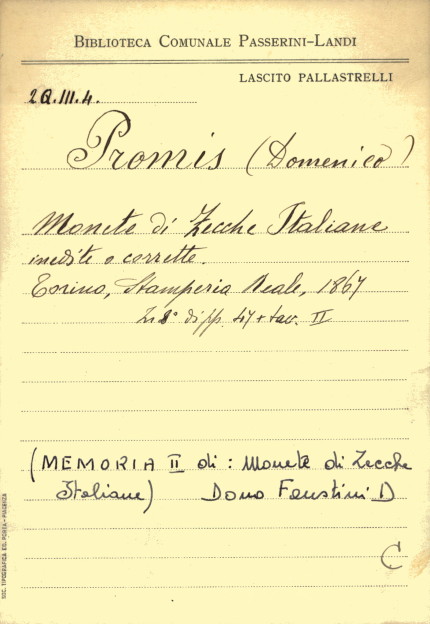 BIBLIOTECA COMUNALE PASSERINI-LANDI
LASCITO PALLASTRELLI
2Q.III.4.
Promis (Domenico)
Monete di Zecche Italiane
inedite o corrette.
Torino, Stamperia Reale, 1867
In 8° di pp. 47 + tav. II
(MEMORIA II di: Monete di Zecche
Italiane) Dono Faustini D
C
SOC. TIPOGRAFICA ED. PORTA - PIACENZA